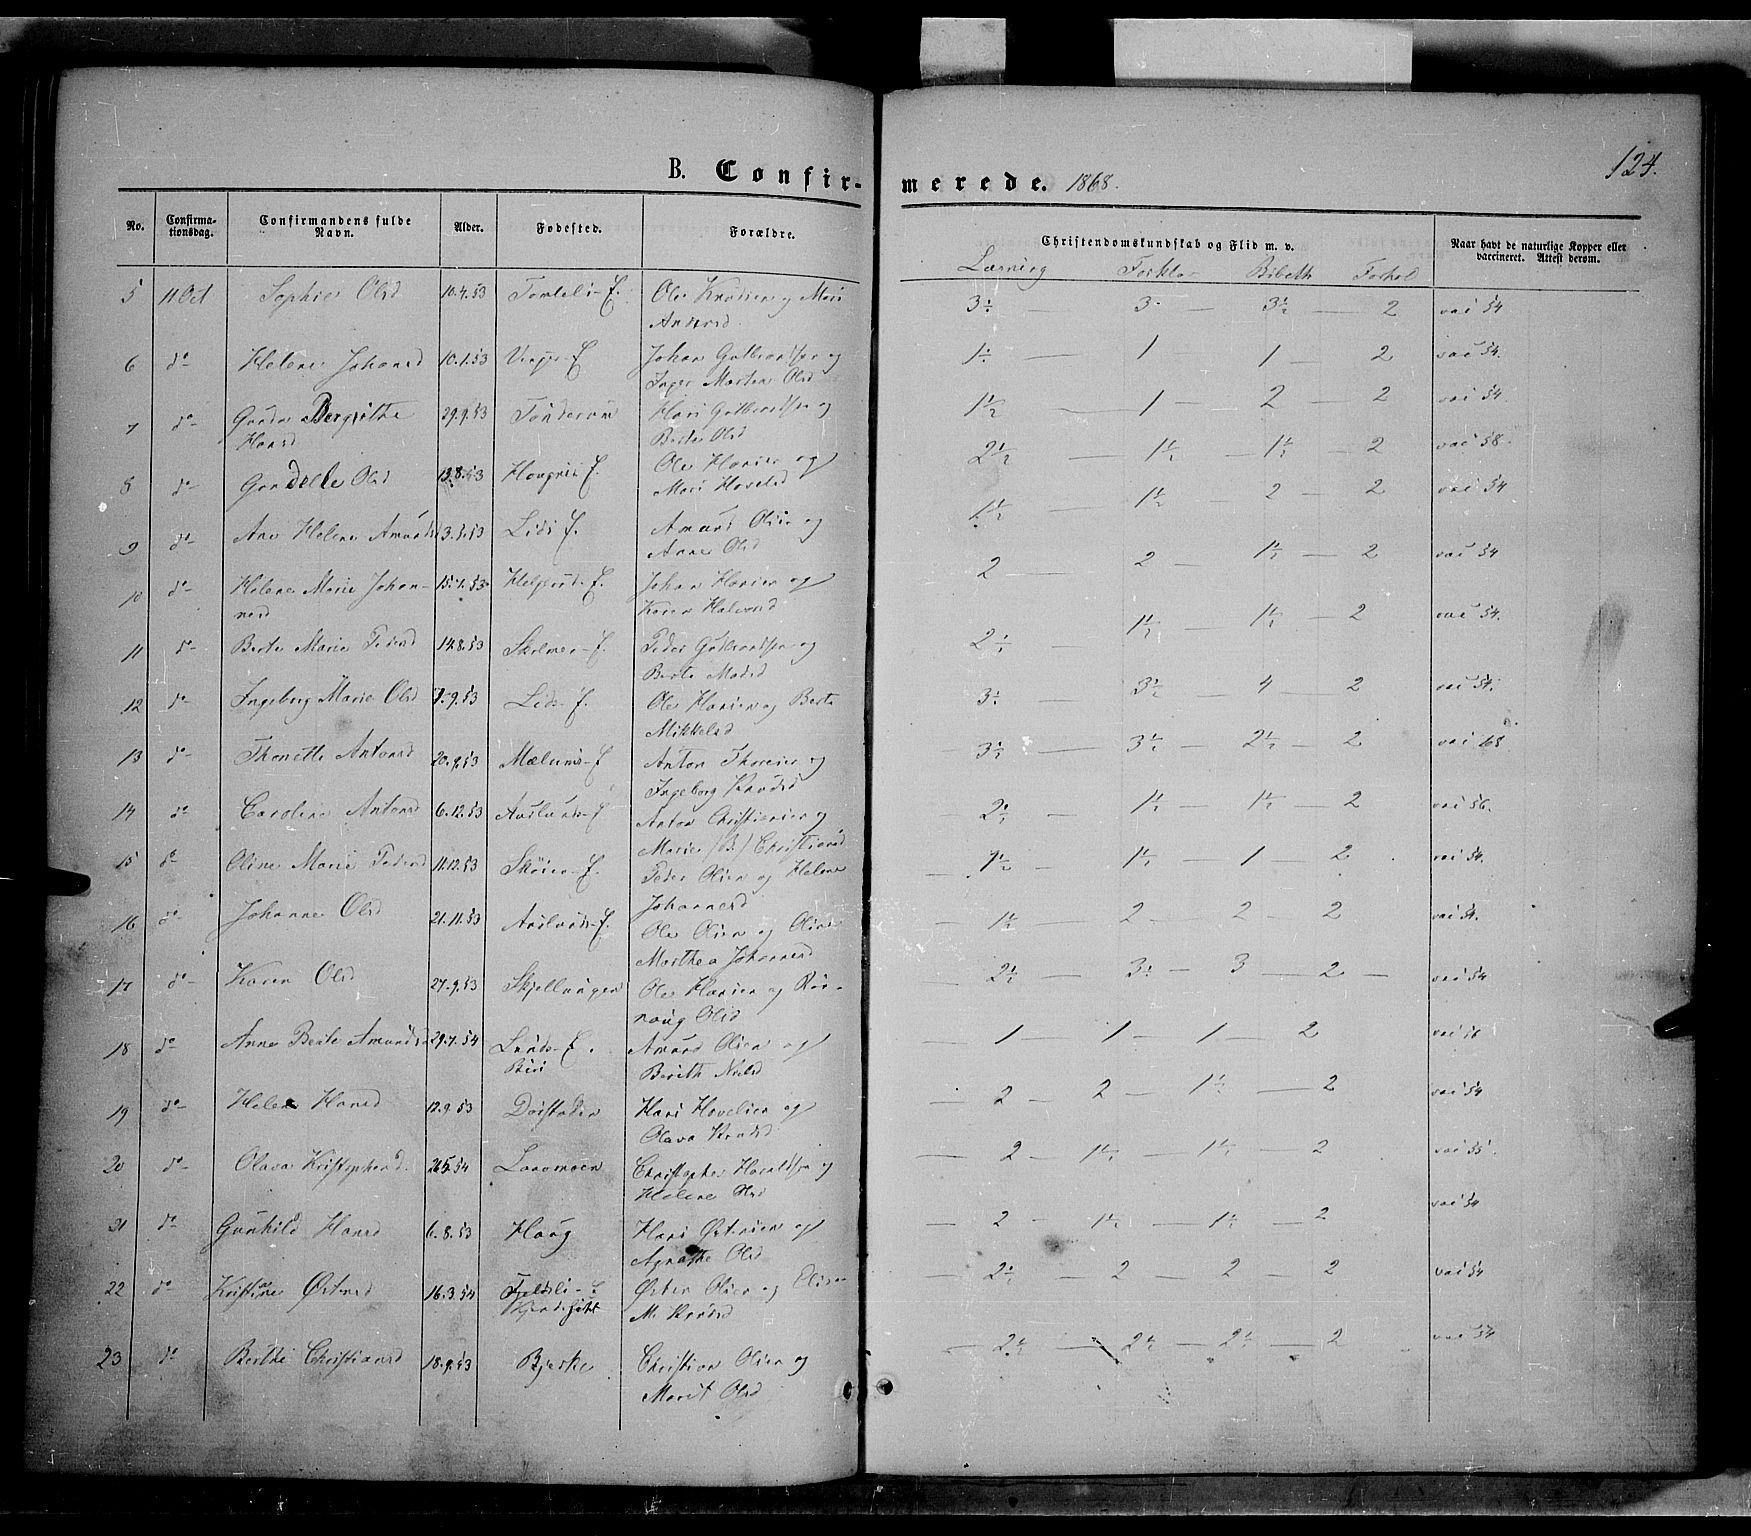 124.
B. Confir- merede. 1868.
No. Confirma-tionsdag. Confirmandens fulde Navn. Alder. Fødested. Forældre. Christendomskundskab og Flid m. v. Naar havt de naturlige Kopper eller vaccineret. Attest derom.
Læsning Forklar Bibelh Forhol
5 11 Oct Sophie Olsd 10.4.53 Ole Knudsen og Mari 3½ — 3 — 3½ — 2 vac 54
Andersd.
6 do Helene Johansd 10.1.53 Johan Gulbrandsen og 1½ — 1 1 — 2 vac 54.
Inger Marten Olsd
7 do Bergithe 29.9.53 Hans Gulbrandsen og 1½ — 1 — 2 — 2 vac 54.
Hansd Berte Olsd
8 do Olsd 13.8.53 Ole Hansen og 2½ — 1½ — 1½ — 2 vac 58.
Mari
9 do Ane Helene Amunds 3.5.53 Lids E. Amund Olsen og 1½ 1½ — 2 — 2 vac 54
Anne Olsd
10 do Helene Marie Johan- 15.7.53 Helgerud-E. Johan Hansen og 2 — 2 — 1½ — 2 vac 54
nesd Karen Halvorsd
11 do Berte Marie Pedersd 14.8.53 Peder Gulbrandsen og 2½ — 1½ — 1½ — 2 vac 54.
Berte Madsd
12 do Ingeborg Marie Olsd 7.9.53 Lids-E. Ole Hansen og Berte 3½ 3½ — 4 — 2 vac 54.
Mikkelsd
13 do Thonette Antonsd 20.9.53 Mælums-E Anton Thoresen og 3½ — 3½ — 2½ — 2 vac 68
Ingeborg Knudsd
14 do Caroline Antonsd 6.12.53 Aaslunds-E Anton Christiansen og — 2½ — 1½ — 1½ — 2 vac 56.
Marie (B) Christiansd
15 do Oline Marie Pedersd 11.12.53 Skøien-E. Peder Olsen og Helene — 1½ — 1½ — 1 — 2 vac 54.
Johannesd
16 do Johanne Olsd 21.11.53 Aaslunds-E. Ole Olsen og Oline — 1½ — 2 — 2 — 2 vac 54.
Marthea Johannesd
17 do Karen Olsd 27.9.53 Skjellungen Ole Hansen og Røn- — 2½ — 3½ — 3 — 2 — vac 54
naug Olsd
18 do Anne Berte Amundsd 29.7.54 Lunds-E. Amund Olsen og — 1 1 — 1 — 2 vac 56
Biri Berith Nilsd
19 do Helene Hansd 12.9.53 Hans Hovelsen og — 2 — 2 — 1½ — 2 vac 54
Olava Knudsd
20 do Olava Kristophersd. 26.5.54 Laavmoen Christopher Haraldsen og — 2 — 1½ — 1½ — 2 vac 55
Helene Olsd
21 do Gunhild Hansd 6.8.53 Haug Hans Østensen og — 2 — 1½ — 1½ — 2 vac 54
Agnethe Olsd
22 do Kristine Østensd 16.3.54 Fjeldsli-E Østen Olsen og Elisa — 2½ — 2 — 2 — 2 vac 54
M. Knudsd
23 do Berthe Christiansd 18.9.53 Bjerke Christian Olsen og — 2½ — 2½ — 2½ — 2 vac 54
Marit Olsd